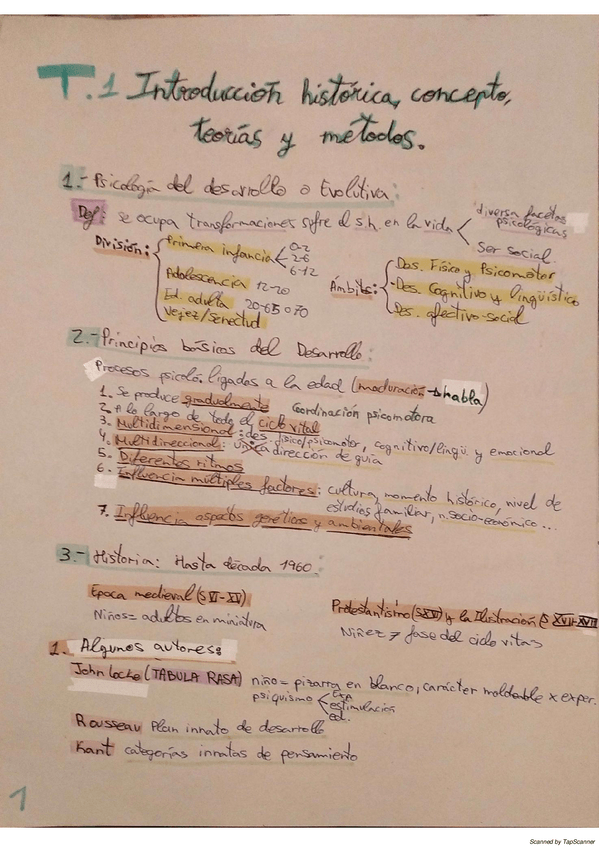 T.1 Introducción histórica, concepto,
teorías y métodos.
1.- Psicología del desarrollo o Evolutiva:
Def: se ocupa transformaciones sufre el s.h. en la vida
diversa facetas psicológicas
Ser social.
División:
Primera infancia
0-2
2-6
6-12
Adolescencia 12-20
Ed. adulta 20-65 o 70
Vejez/senectud
Ámbitos:
Des. Físico y Psicomotor
Des. Cognitivo y lingüístico
Des. afectivo-social
2.- Principios básicos del Desarrollo:
Procesos psicoló. ligados a la edad (maduración → habla)
Coordinación psicomotora
1. Se produce gradualmente
2. A lo largo de todo el ciclo vital
3. Multidimensional: des. físico/psicomotor, cognitivo/lingü. y emocional
4. Multidireccional: dirección de guía
5. Diferentes ritmos
6. Influencia múltiples factores: cultura, momento histórico, nivel de
estudios familiar, n. socio-económico...
7. Influencia aspectos genéticos y ambientales
3.- Historia: Hasta década 1960:
Época medieval (S VI-XV)
Niños = adultos en miniatura
Protestantismo (S XVI) y la Ilustración (S XVII-XVIII
Niñez ≠ fase del ciclo vitas
1. Algunos autores:
John Locke (TABULA RASA) niño = pizarra en blanco, carácter moldeable x exper.
psiquismo
Exp
estimulación
ed.
Rousseau Plan innato de desarrollo
Kant categorías innatas de pensamiento
1
Scanned by TapScanner